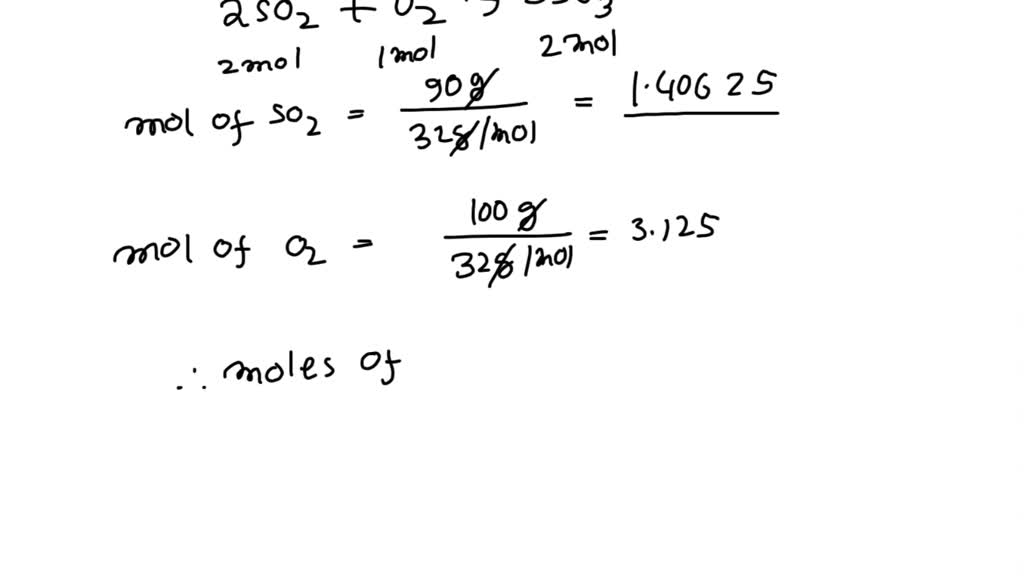 2SO2 + O2 → 2SO3
2mol 1mol 2mol
mol of SO2 = 90g / 32g/mol = 1.40625
mol of O2 = 100g / 32g/mol = 3.125
∴ moles of